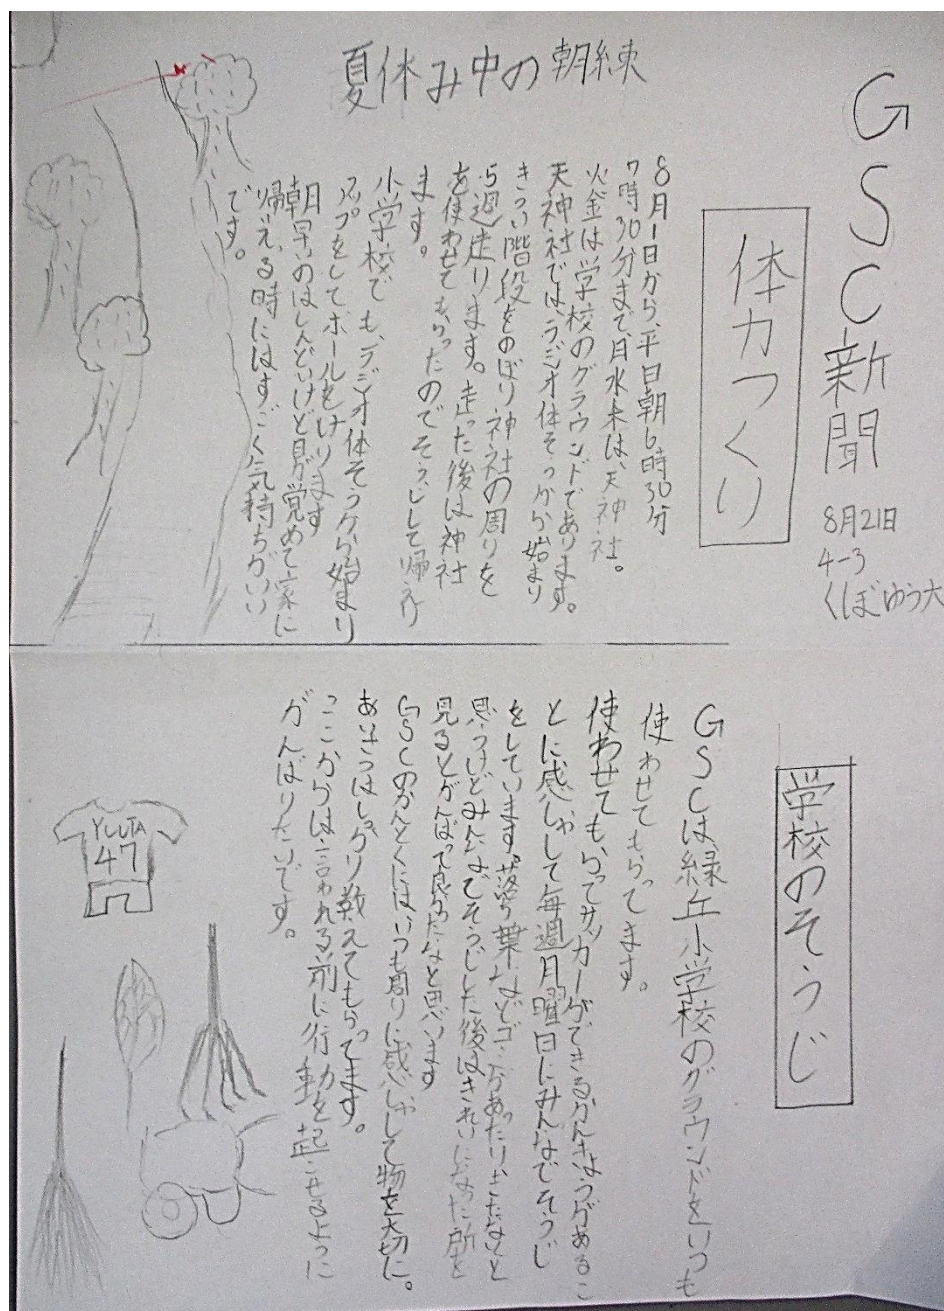 GSC新聞
8月21日
4-3
くぼゆう大
体力つくり
夏休み中の朝練
8月1日から、平日朝6時30分
7時30分まで、月水木は、天神社。
火金は学校のグラウンドであります。
天神社では、ラジオ体そうから始まり
きつい階段をのぼり神社の周りを
5週走ります。走った後は神社
を使わせてもらったのでそうじして帰り
ます。
小学校でも、ラジオ体そうから始まり
アップをしてボールをけります
朝早いのはしんどいけど目が覚めて家に
帰える時にはすごく気持ちがいい
です。
学校のそうじ
GSCは緑丘小学校のグラウンドをいつも
使わせてもらってます。
使わせてもらってサッカーができるかんきょうがあるこ
とに感しゃして毎週月曜日にみんなでそうじ
をしています。落ち葉などゴミがあったりきたないと
思うけどみんなでそうじした後はきれいになった所を
見るとがんばって良かったなと思います
GSCのかんとくには、いつも周りに感しゃして物を大切に。
あいさつはしっかり教えてもらってます。
ここからは言われる前に行動を起こせるように
がんばりたいです。
YUUTA
47